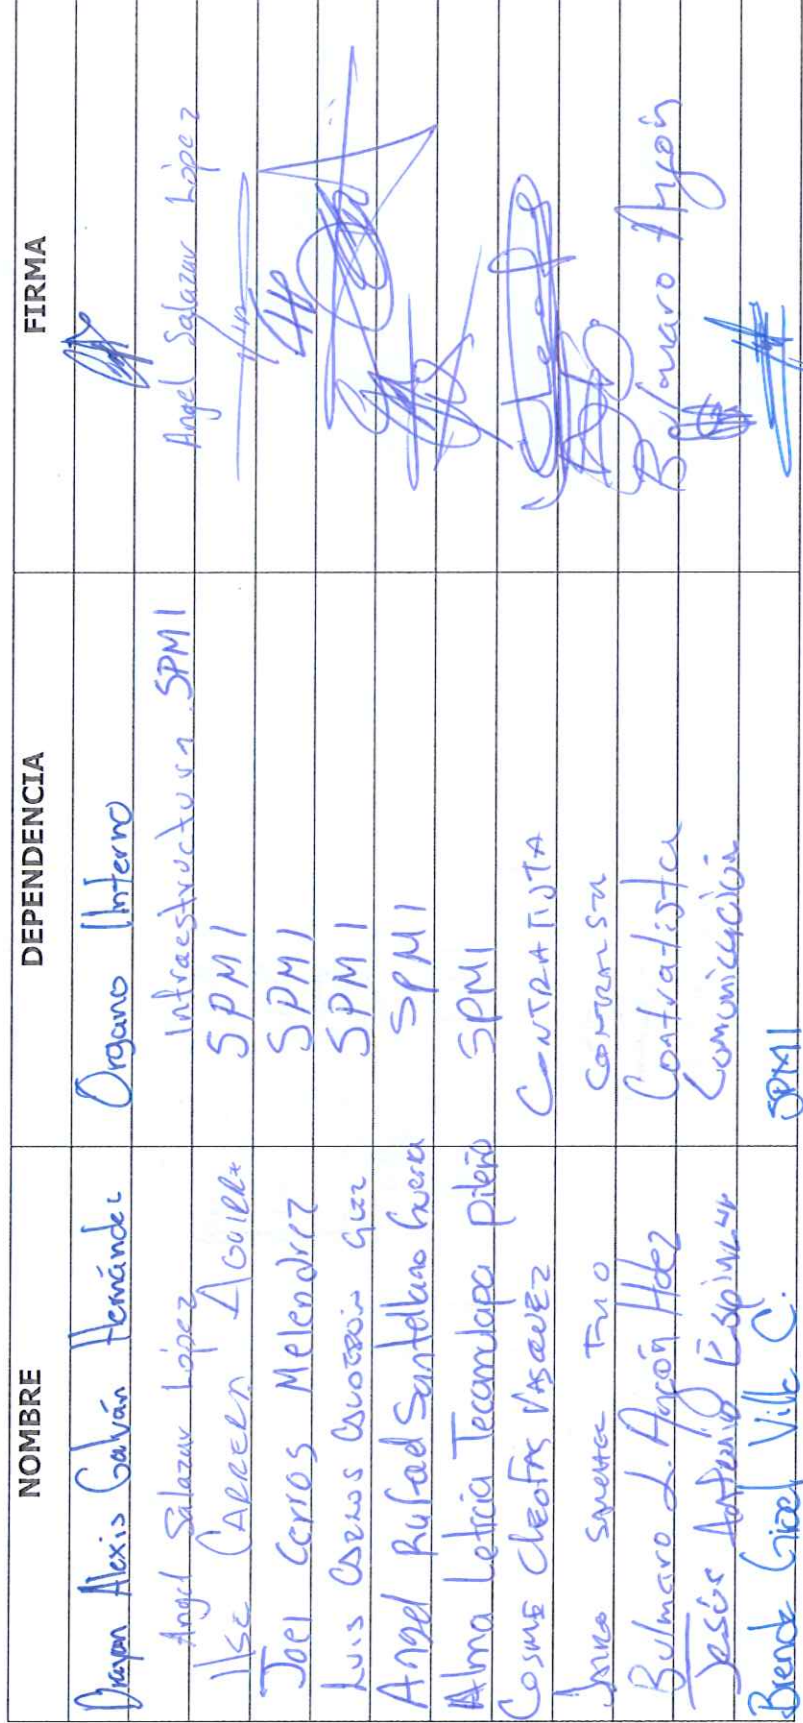 NOMBRE DEPENDENCIA FIRMA
Brayan Alexis Galván Hernández Organo Interno
Angel Salazar López Infraestructura SPMI Angel Salazar López
Ilse CARRERA AGUIRRE SPMI
Joel Cerros Melendrez SPMI
Luis CARLOS SPMI
Angel Rafael Santellano Guerra SPMI
Alma Leticia Tecamulapa Piteño SPMI
COSME CleoFAS VASQUEZ CONTRATISTA
SANCHEZ
Bulmaro L. Ayçón Hdez Contratista Bulmaro Ayçón
Jesús Antonio Comunicación
Brenda Gisel Villa C. SPMI